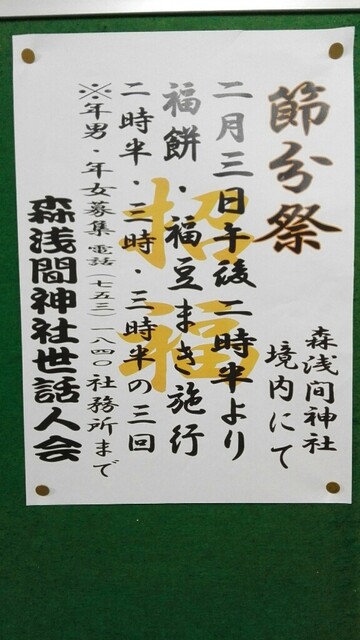 節分祭
森浅間神社
境内にて
二月三日午後二時半より
福餅・福豆まき施行
二時半・三時・三時半の三回
※年男・年女募集 電話(七五三)一八四〇社務所まで
森浅間神社世話人会
招福